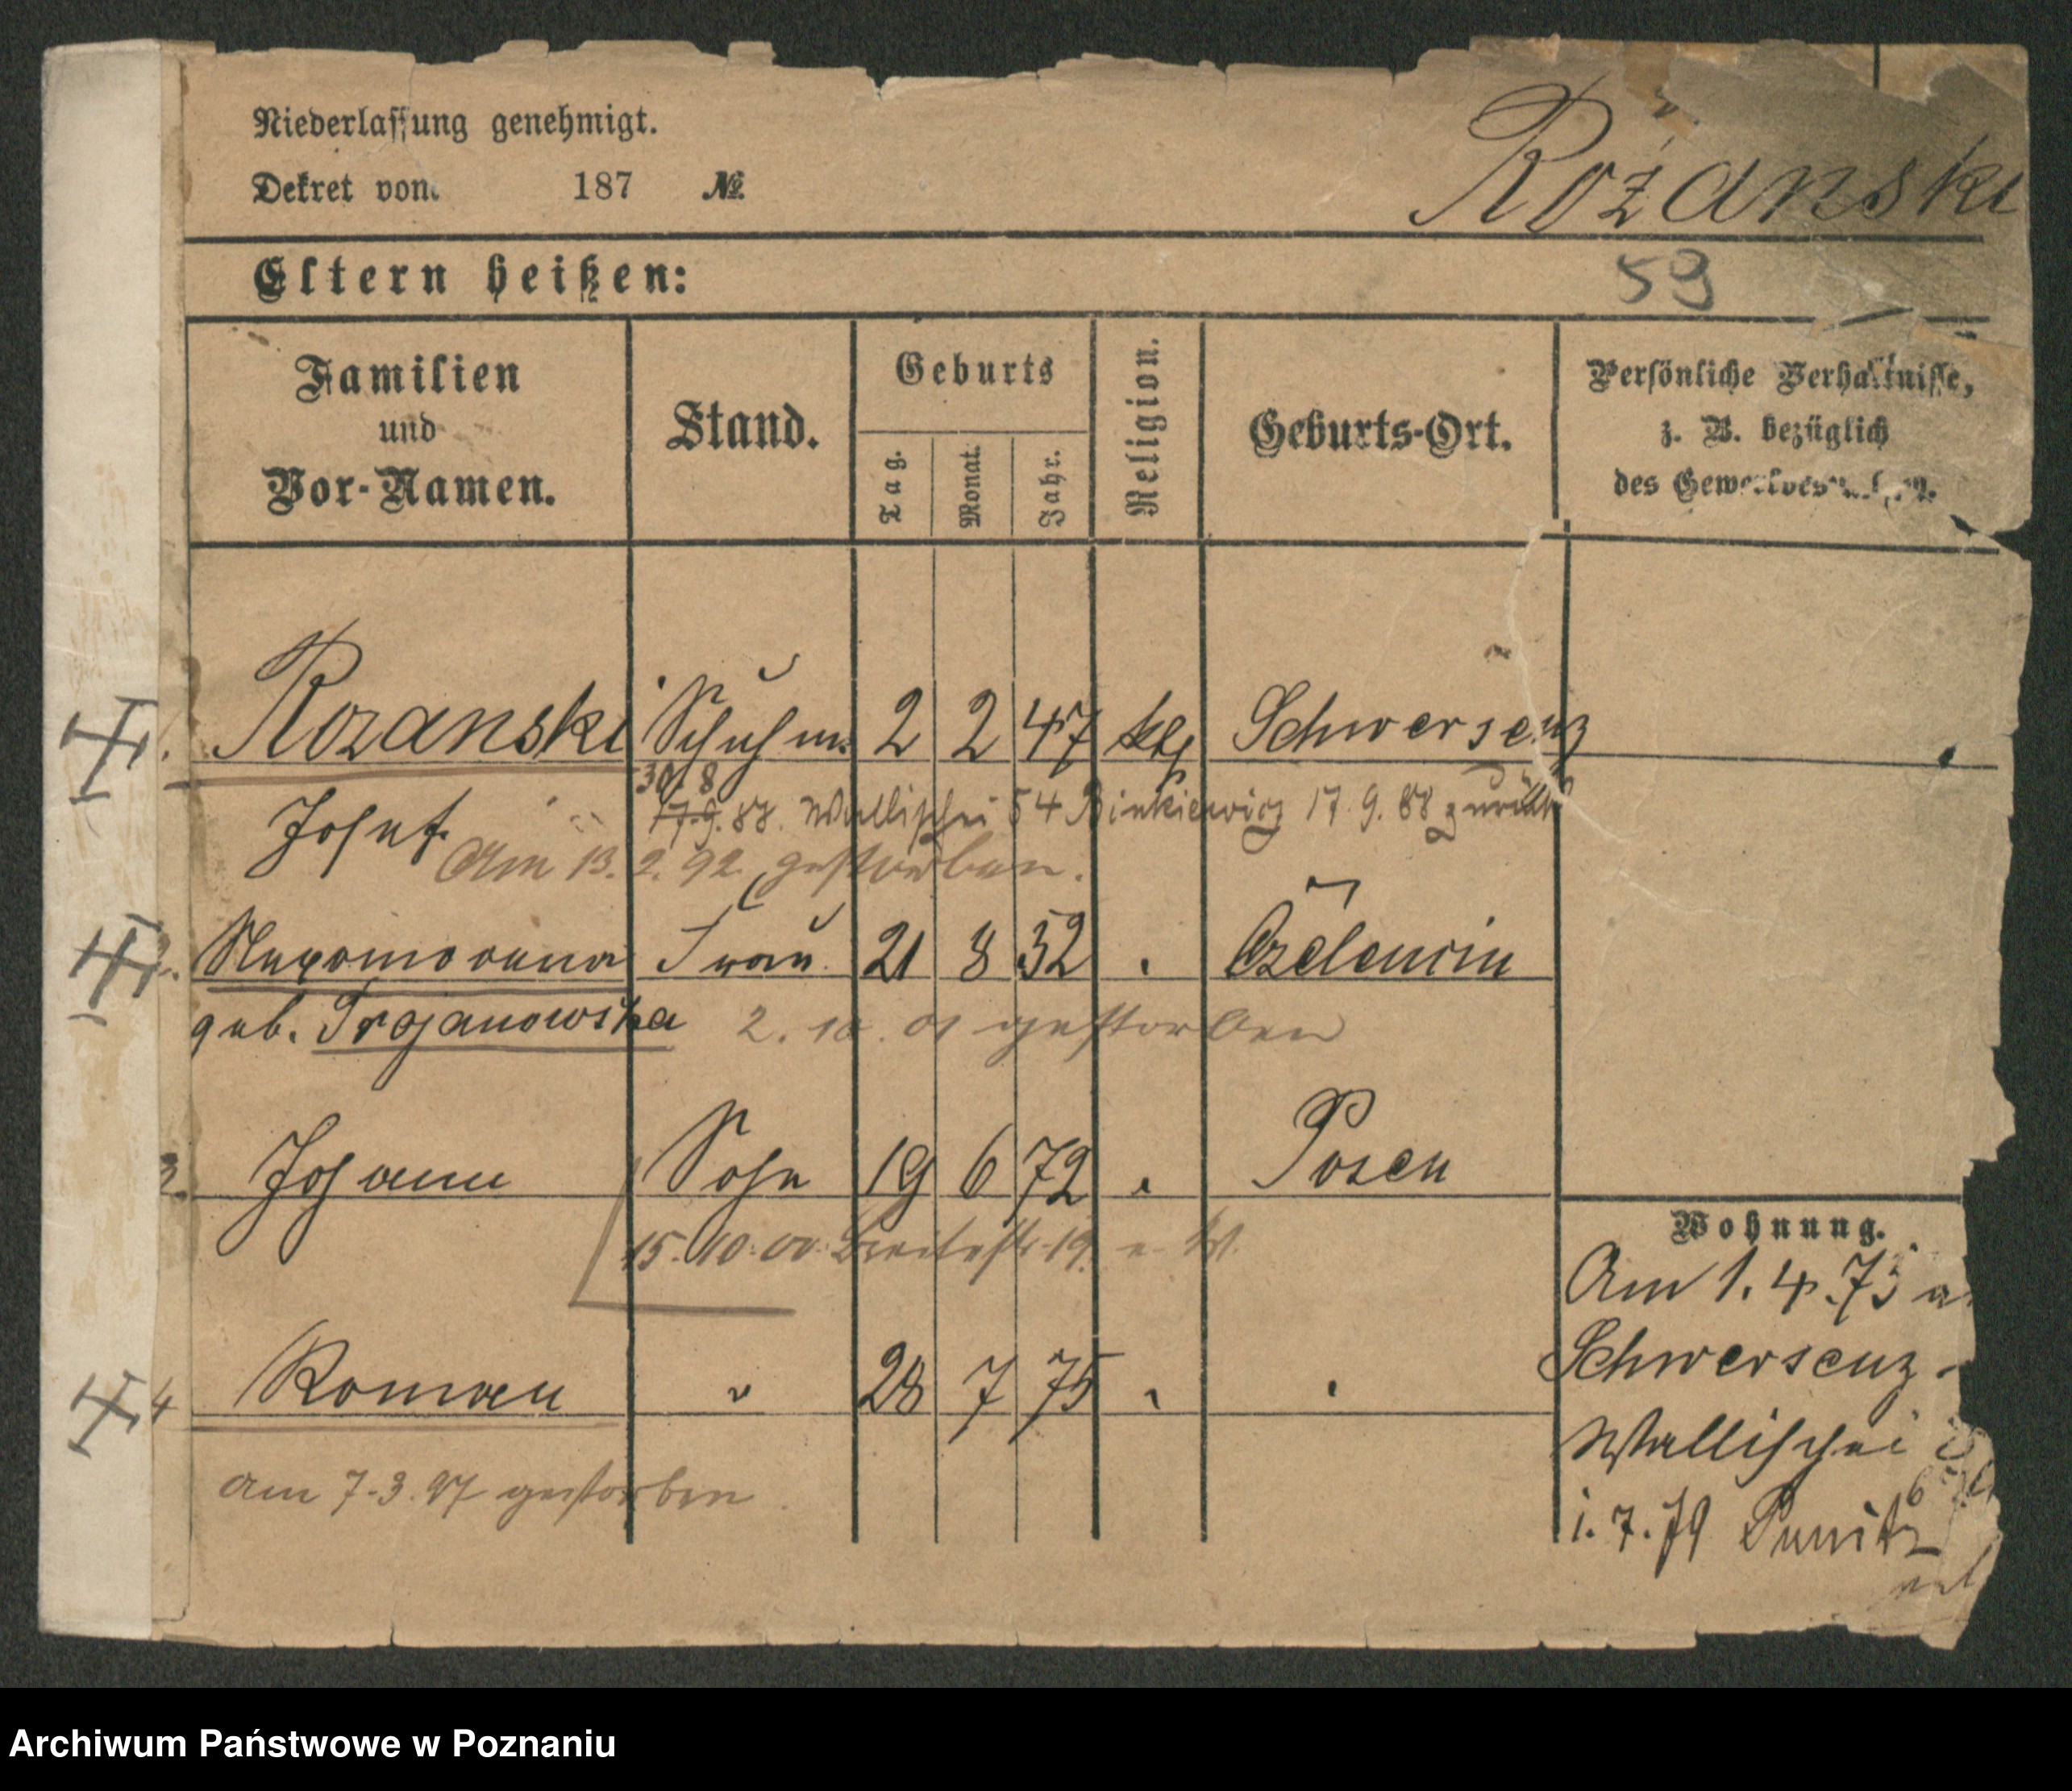 Niederlassung genehmigt.
Dekret vom 187 №
Rożanski
Eltern heißen:
59
Familien und Vor-Namen.
Stand.
Geburts
Tag.
Monat.
Jahr.
Religion.
Geburts-Ort.
Persönliche Verhältnisse,
z. B. bezüglich
des
1. Rozanski Schuhm. 2 2 47 ktl Schwersenz
30. 8
17.9. 88. Wallischei 54 Binkiewicz 17.9.88 zurück
Josef
Am 13. 2. 92. gestorben.
2. Nepomocena Frau 21 8 52 "
geb. Trojanowska 2. 10. 01 gestorben
3. Johann Sohn 19 6 72 " Posen
15. 10. 00. Breitestr. 19.
Wohnung.
Am 1.4.75
Schwersenz
4 Roman " 28 7 75 " "
Wallischei
am 7.3.97 gestorben
1.7.79
Archiwum Państwowe w Poznaniu